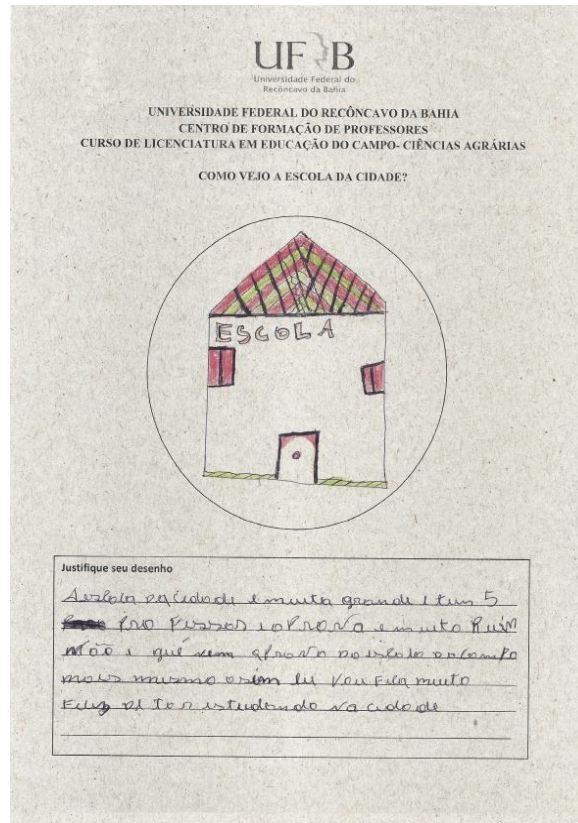 UFRB
Universidade Federal do
Recôncavo da Bahia
UNIVERSIDADE FEDERAL DO RECÔNCAVO DA BAHIA
CENTRO DE FORMAÇÃO DE PROFESSORES
CURSO DE LICENCIATURA EM EDUCAÇÃO DO CAMPO- CIÊNCIAS AGRÁRIAS
COMO VEJO A ESCOLA DA CIDADE?
ESCOLA
Justifique seu desenho
A escola da cidade e muita grande e tem 5
Pro Fessos e a ProvA e muito RuiM
Não e que nem a Prova da escola do campo
mais mesmo asim Eu Vou Fica muito
Feliz di Ta estudando na cidade